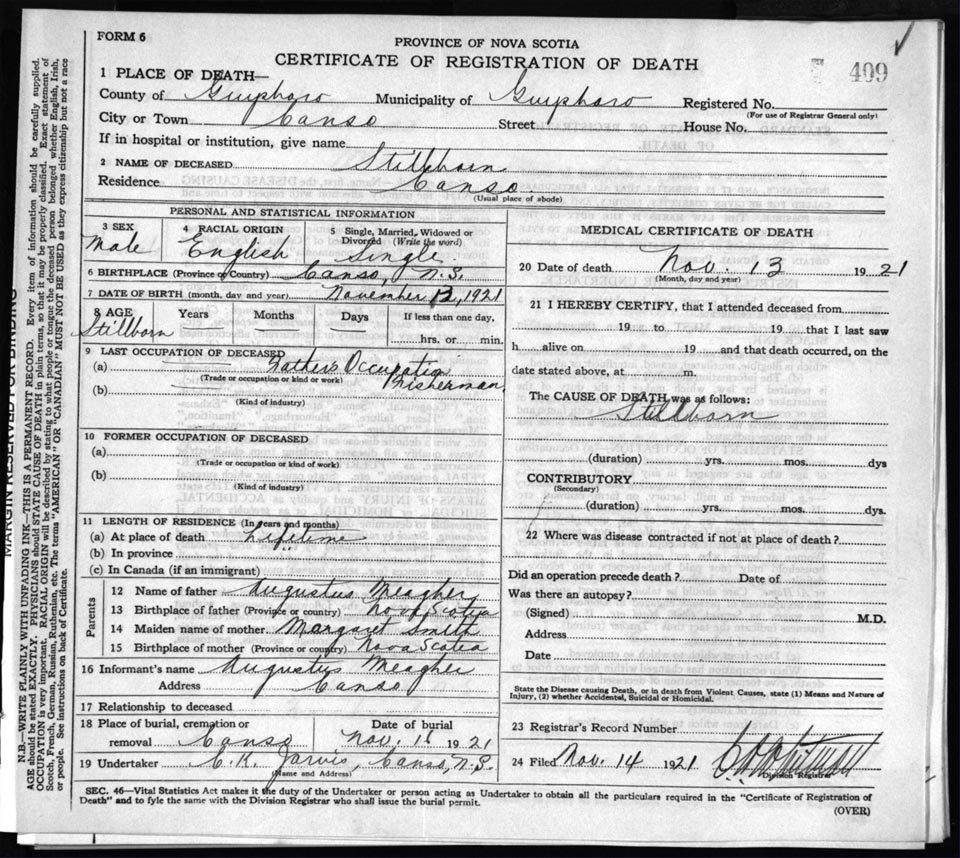 FORM 6
PROVINCE OF NOVA SCOTIA
CERTIFICATE OF REGISTRATION OF DEATH
409
1 PLACE OF DEATH—
County of Guysboro Municipality of Guysboro Registered No.
(For use of Registrar General only)
City or Town Canso Street House No.
If in hospital or institution, give name
2 NAME OF DECEASED Stillborn
Residence Canso.
(Usual place of abode)
PERSONAL AND STATISTICAL INFORMATION
3 SEX 4 RACIAL ORIGIN 5 Single, Married, Widowed or Divorced (Write the word)
Male English Single.
6 BIRTHPLACE (Province or Country) Canso, N.S.
7 DATE OF BIRTH (month, day and year) November 13, 1921
8 AGE Years Months Days If less than one day,
Stillborn hrs. or min.
9 LAST OCCUPATION OF DECEASED
(a) Fathers Occupation
(Trade or occupation or kind or work)
(b) Fisherman
(Kind of industry)
10 FORMER OCCUPATION OF DECEASED
(a)
(Trade or occupation or kind or work)
(b)
(Kind of industry)
11 LENGTH OF RESIDENCE (In years and months)
(a) At place of death Lifetime
(b) In province
(c) In Canada (if an immigrant)
Parents
12 Name of father Augustus Meagher
13 Birthplace of father (Province or country) Nova Scotia
14 Maiden name of mother Margaret Smith
15 Birthplace of mother (Province or country) Nova Scotia
16 Informant's name Augustus Meagher
Address Canso
17 Relationship to deceased
18 Place of burial, cremation or Date of burial
removal Canso Nov. 1921
19 Undertaker C. K. Jarvis, Canso, N.S.
(Name and Address)
MEDICAL CERTIFICATE OF DEATH
20 Date of death Nov. 13 1921
(Month, day and year)
21 I HEREBY CERTIFY, that I attended deceased from
19 to 19 that I last saw
h alive on 19 and that death occurred, on the
date stated above, at m.
The CAUSE OF DEATH was as follows:
Stillborn
(duration) yrs. mos. dys
CONTRIBUTORY
(Secondary)
(duration) yrs. mos. dys.
22 Where was disease contracted if not at place of death?
Did an operation precede death? Date of
Was there an autopsy?
(Signed) M.D.
Address
Date
State the Disease causing Death, or in death from Violent Causes, state (1) Means and Nature of
Injury, (2) whether Accidental, Suicidal or Homicidal.
23 Registrar's Record Number
24 Filed Nov. 14 1921
Division Registrar
SEC. 46—Vital Statistics Act makes it the duty of the Undertaker or person acting as Undertaker to obtain all the particulars required in the "Certificate of Registration of
Death" and to fyle the same with the Division Registrar who shall issue the burial permit.
(OVER)
MARGIN RESERVED FOR BINDING
N.B.—WRITE PLAINLY WITH UNFADING INK—THIS IS A PERMANENT RECORD. Every item of information should be carefully supplied.
AGE should be stated EXACTLY. PHYSICIANS should STATE CAUSE OF DEATH in plain terms, so that it may be properly classified. Exact statement of
OCCUPATION is very important. RACIAL ORIGIN will be described by stating to what people or tongue the deceased person belonged whether English, Irish,
Scotch, French, German, Russian, Ruthenian, etc. The terms "AMERICAN" OR "CANADIAN" MUST NOT BE USED as they express citizenship but not a race
or people. See instructions on back of Certificate.